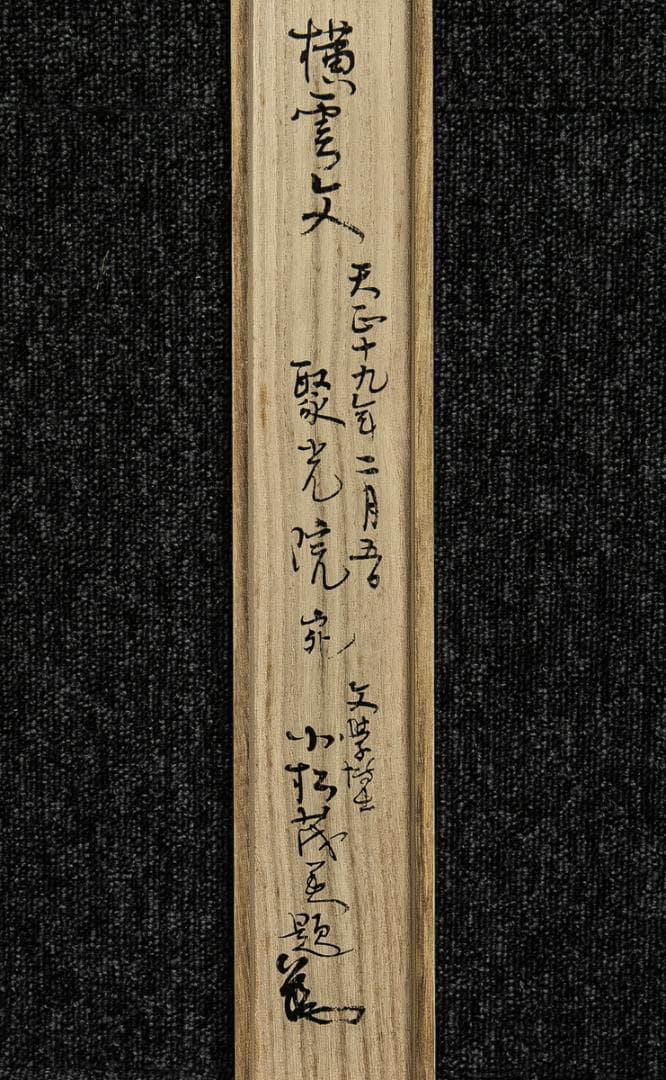 横雲文
天正十九年二月五日
聚光院宛
文学博士
小松茂美題